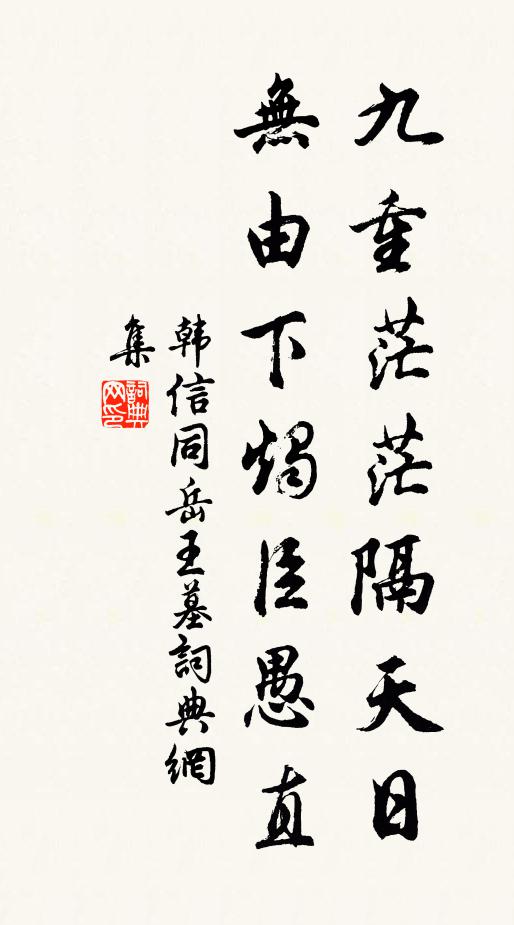 九重茫茫隔天日
無由下燭臣愚直
韩信同岳王墓詞典網
集
詞典
网印